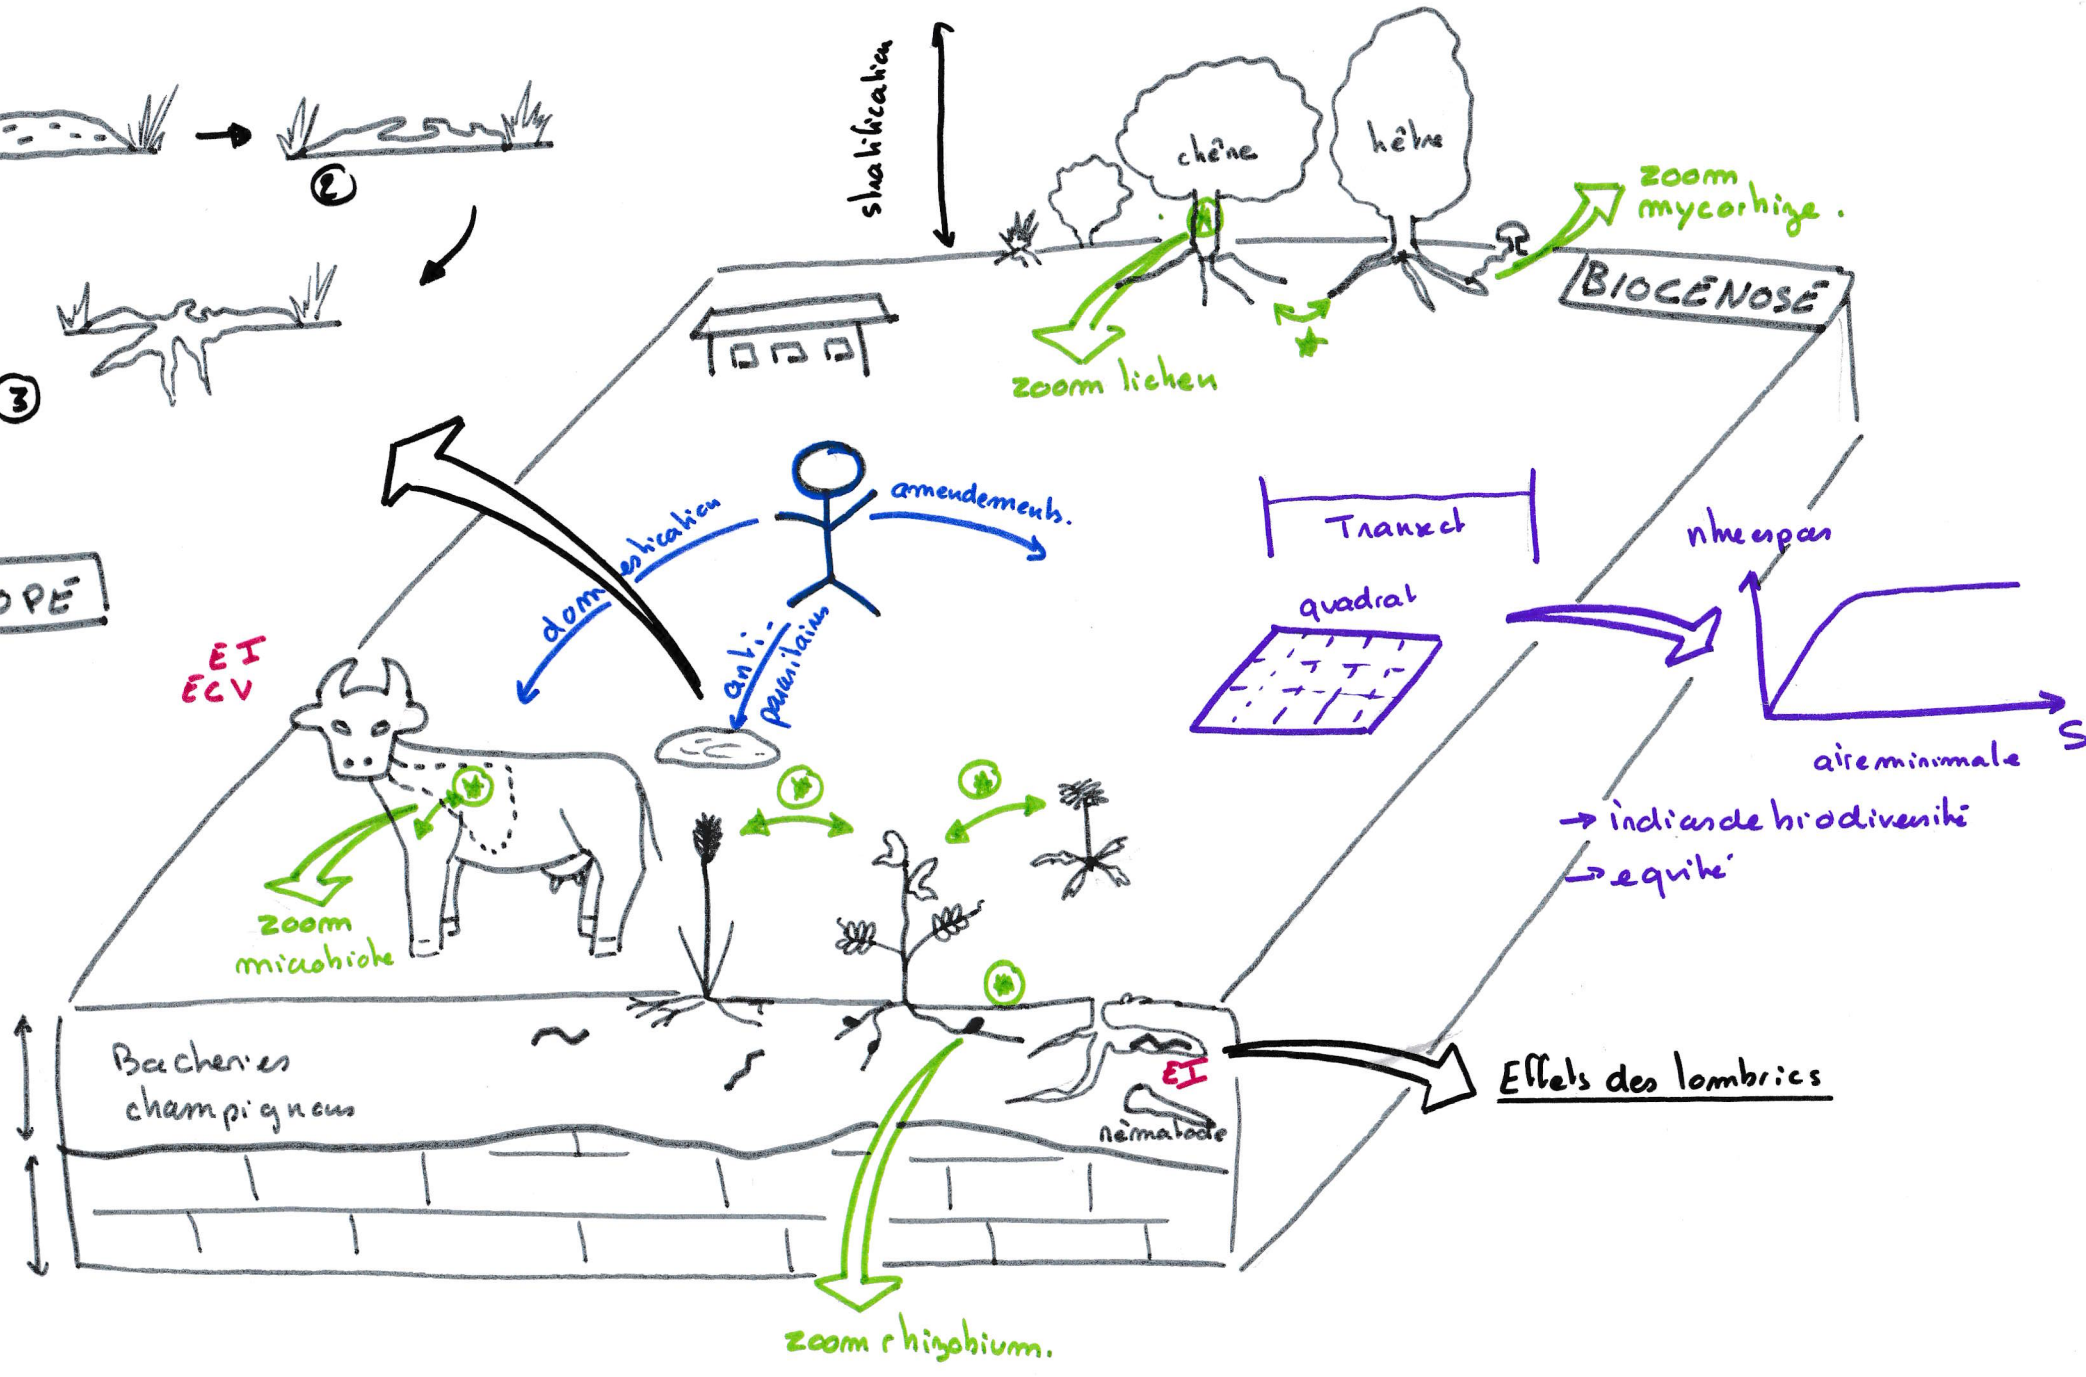 stratification
②
③
chêne
hêtre
zoom
mycorhize.
BIOCÉNOSE
zoom lichen
amendements.
domestication
anti-
parasitaires
Transect
quadrat
nbre espces
S
aire minimale
→ indices de biodiversité
→ equité
OPE
EI
ECV
zoom
microbiote
Bacteries
champignons
EI
nématode
Effets des lombrics
zoom rhizobium.